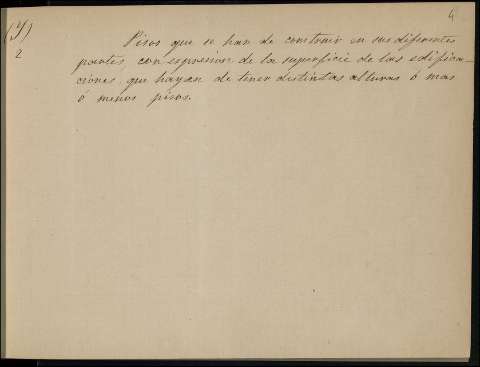 4
(J)
2
Pisos que se han de construir en sus diferentes
partes, con espresion de la superficie de las edifica-
ciones que hayan de tener distintas alturas ó mas
ó menos pisos.